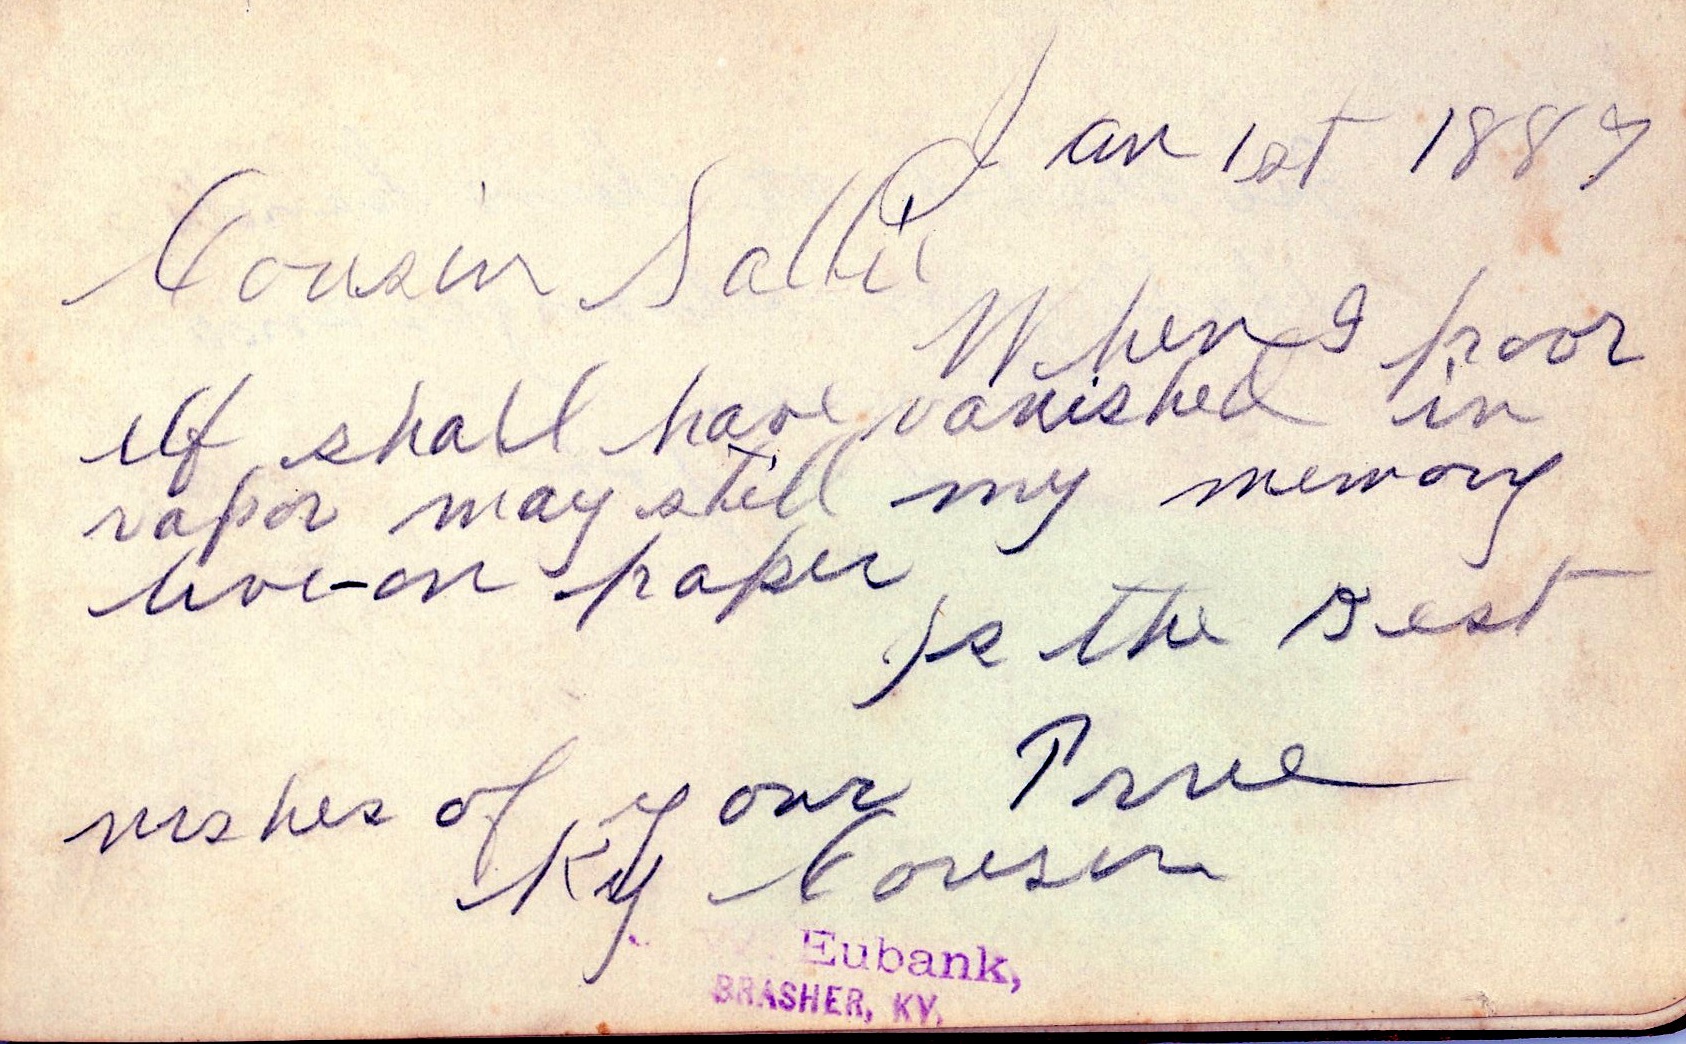 Jan 1st 1887
Cousin Sallie
When I poor
elf shall have vanished in
vapor may still my memory
live-on paper
Is the Best
wishes of your True
Ky Cousin
Eubank,
BRASHER, KY.